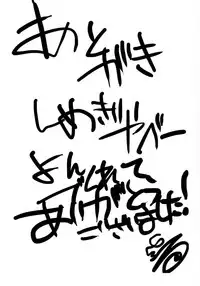 あとがき
しめきりヤバー
よんくれて
ありがとうございました!